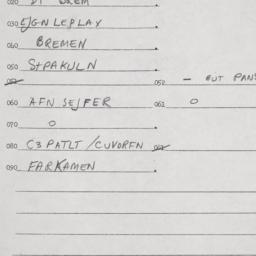 020 DI
030 EJGNLEPLAY
040 BREMEN
050 StPAKULN
052 - OUT PANS
060 AFN SEJFER 061 O
070 O
080 C3 PATLT / CUVORFN
090 FARKAMEN